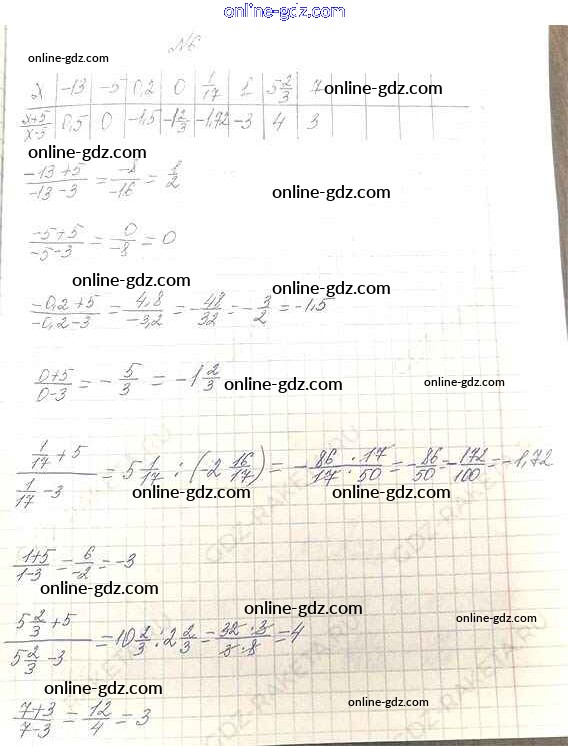 online-gdz.com
№6
x | -13 | -5 | 0,2 | 0 | 1/17 | 1 | 5 2/3 | 7
online-gdz.com
(x+5)/(x-5) | 0,5 | 0 | -1,5 | -1 2/3 | -1,72 | -3 | 4 | 3
online-gdz.com
(-13+5)/(-13-3) = -8/-16 = 1/2
online-gdz.com
(-5+5)/(-5-3) = 0/-8 = 0
online-gdz.com
online-gdz.com
(-0,2+5)/(-0,2-3) = 4,8/-3,2 = -48/32 = -3/2 = -1,5
(0+5)/(0-3) = -5/3 = -1 2/3
online-gdz.com
online-gdz.com
(1/17+5)/(1/17-3) = 5 1/17 : (-2 16/17) = -(86·17)/(17·50) = -86/50 = -172/100 = -1,72
online-gdz.com
online-gdz.com
GDZ-RAKETA.RU
(1+5)/(1-3) = 6/-2 = -3
online-gdz.com
online-gdz.com
online-gdz.com
(5 2/3+5)/(5 2/3-3) = 10 2/3 : 2 2/3 = (32·3)/(3·8) = 4
GDZ-RAKETA.RU
online-gdz.com
online-gdz.com
(7+3)/(7-3) = 12/4 = 3
online-gdz.com